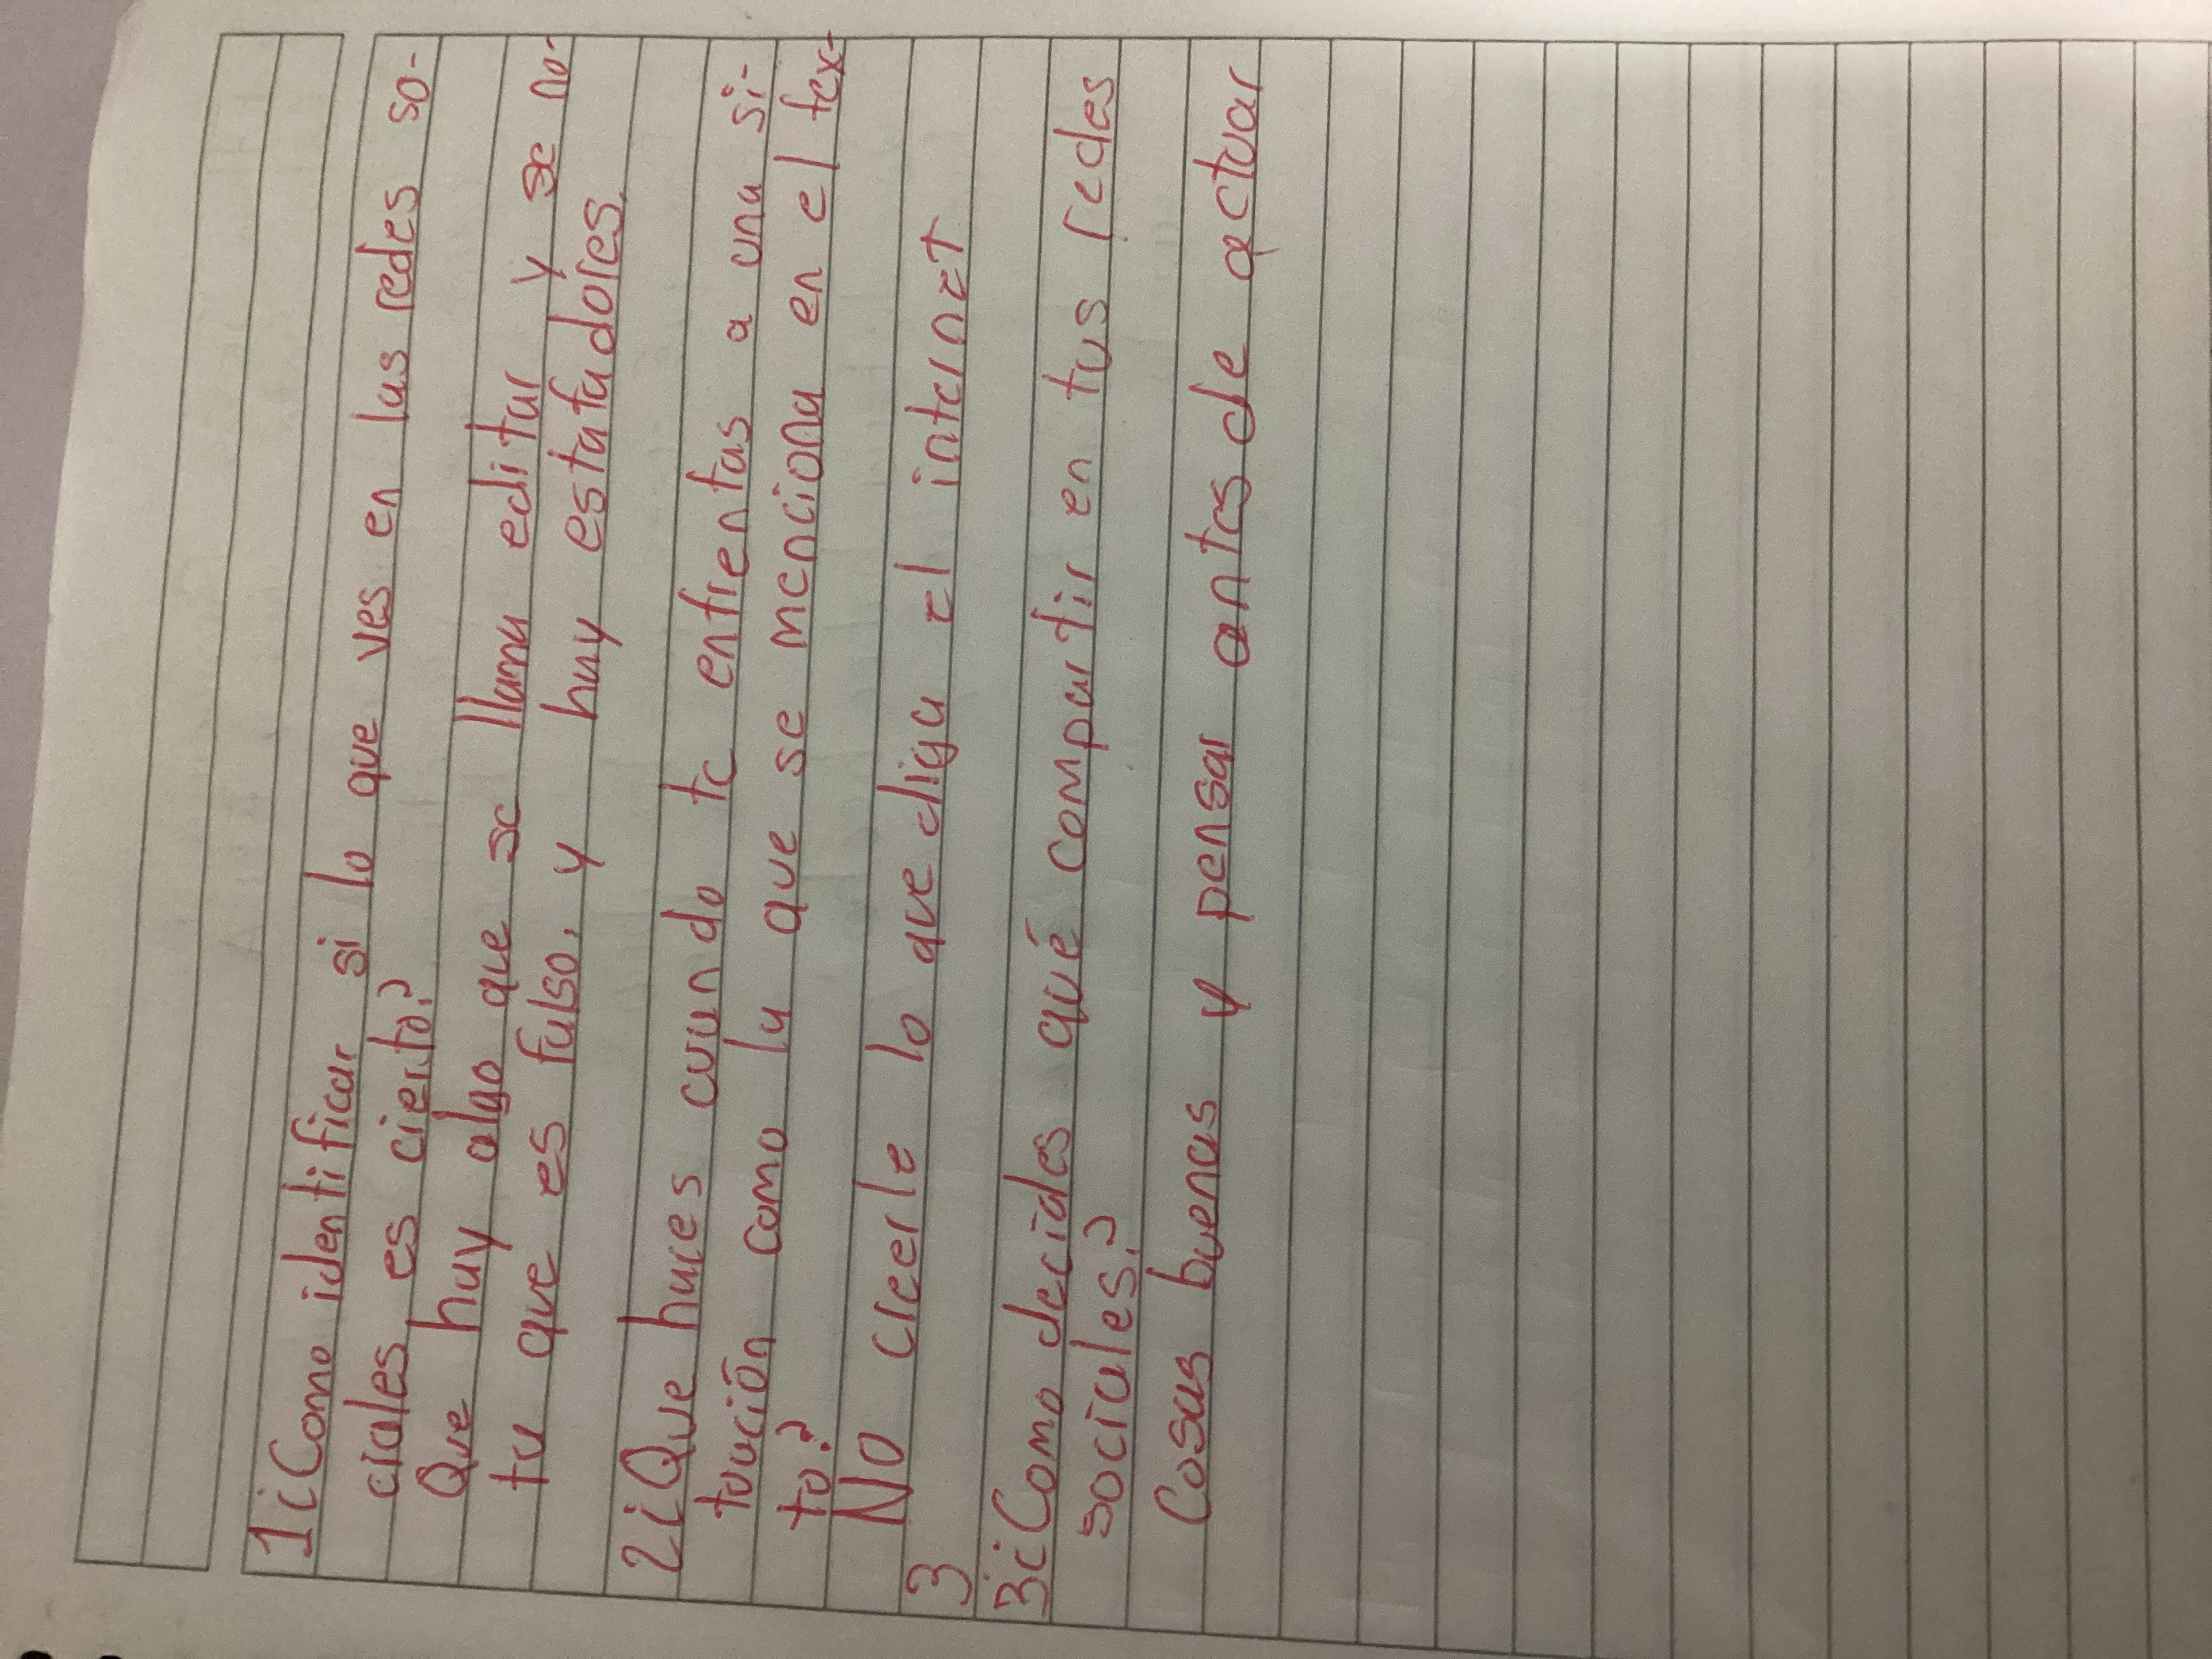 1 ¿Como identificar si lo que ves en las redes so-
ciales es cierto?
Que hay algo que se llama editar y se no-
ta que es falso, y hay estafadores
2 ¿Que haces cuando te enfrentas a una si-
tuación como la que se menciona en el tex-
to?
No creerle lo que diga el internet
3
3 ¿Como decides qué compartir en tus redes
sociales?
Cosas buenas y pensar antes de actuar